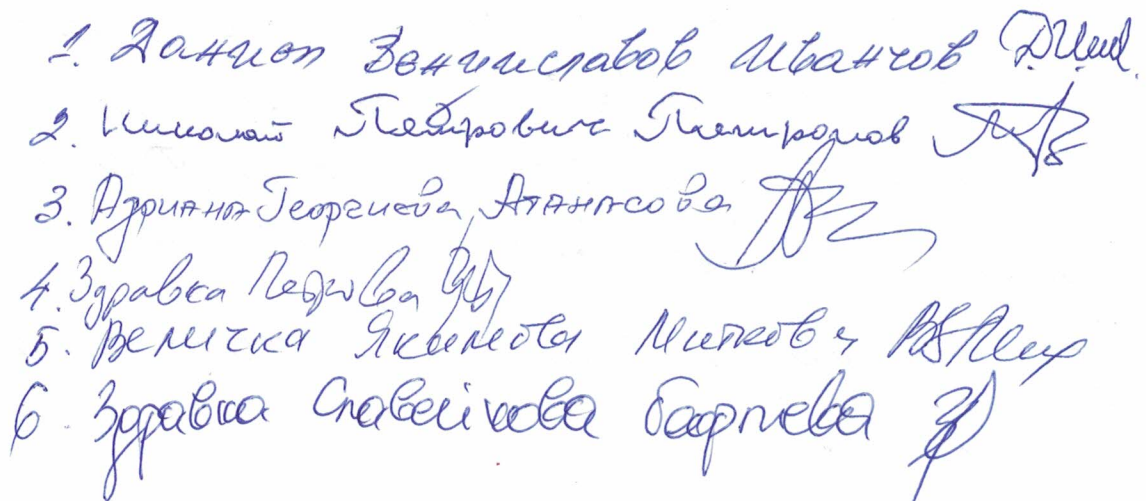 1. Даниел Венциславов Иванчов
2. Николай Петрович
3. Адриана Георгиева Атанасова
4. Здравка Петкова
5. Величка Якимова Миткова
6. Здравка Славейкова